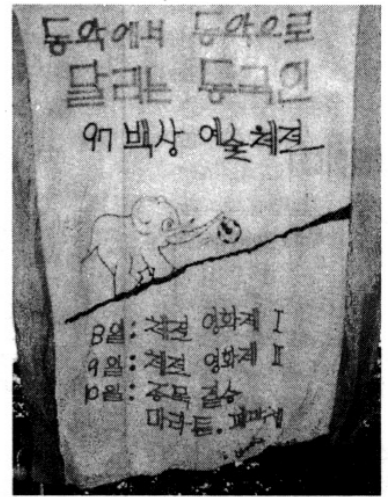 동악에서 동악으로
달리는 동국인
97 백상 예술체전
8일: 체전 영화제 I
9일: 체전 영화제 II
10일: 종목 결승
마라톤. 폐막제